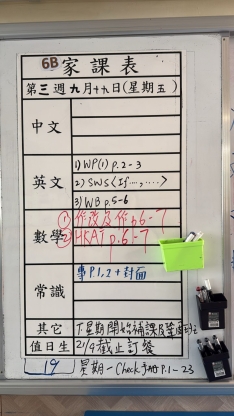 6B 家課表
第三週九月十九日(星期五)
中文
英文
1) WP(1) p.2-3
2) SWS〈If……,……〉
3) WB p.5-6
數學
① 作改及作p6-7
② HKAT p.6-7
常識
專P.1,2+封面
其它
下星期開始補課及
值日生
21/9 截止訂餐
19
星期一Check手冊P.1-23